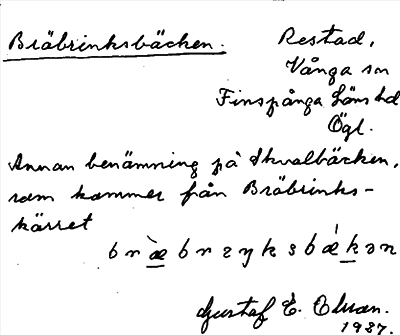 Bräbrinksbäcken.
Restad,
Vånga sn
Finspånga läns hd
Ögl.
Annan benämning på Skvalbäcken,
som kommer från Bräbrinks-
kärret
Gustaf E.
1937.